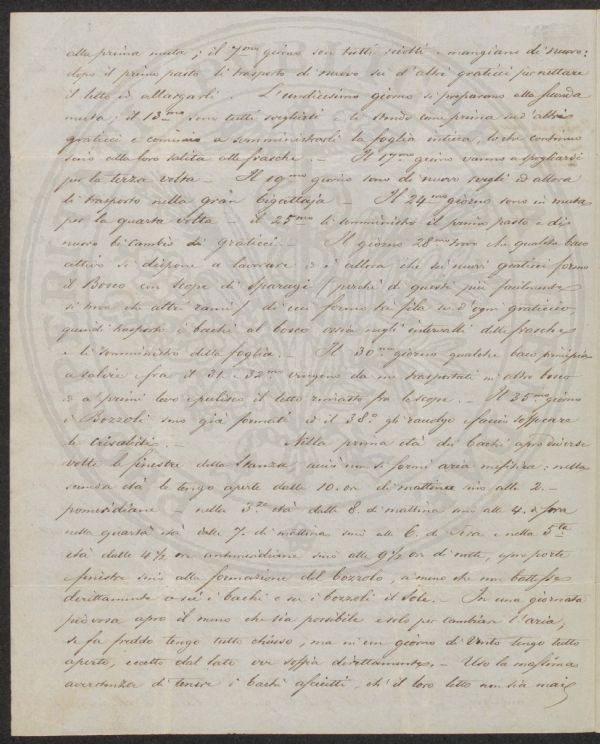 alla prima muta; il 7mo giorno son tutti sciolti e mangiano di nuovo:
dopo il primo pasto li trasporto di nuovo su d'altri graticci per nettare
il letto ed allargarli. L'undicesimo giorno si preparano alla seconda
muta; il 13mo sono tutti svegliati e li stendo come prima su d'altri
graticci e comincio a somministrarli la foglia intiera, lo che continuo
sino alla loro salita alle frasche. — Il 17mo giorno vanno a spogliarsi
per la terza volta — Il 19mo giorno sono di nuovo svegli ed allora
li trasporto nella gran bigattaja — Il 24mo giorno sono in muta
per la quarta volta — il 25mo li somministro il primo pasto e di
nuovo li cambio di graticci. — Il giorno 28mo trovo che qualche baco
attivo si dispone a lavorare ed è allora che su nuovi graticci formo
il Bosco con scope di Sparagi (perchè di questi più facilmente
si trova che altri rami) di cui formo tre fila su d'ogni graticcio
quindi trasporto i bachi al bosco ossia negli intervalli delle frasche
e li somministro della foglia. — Il 30mo giorno qualche baco principia
a salire fra il 31. e 32mo vengono da me trasportati in altro bosco
ed a primi levo e pulisco il letto rimasto fra le scope. — Il 35mo giorno
i Bozzoli sono già formati ed il 38o gli raccolgo e faccio soffocare
le crisalidi. — Nella prima età dei bachi apro diverse
volte le finestre della Stanza, acciò non si formi aria mefitica: nella
seconda età le tengo aperte dalle 10. ore di mattina sino alle 2. —
pomeridiane — nella 3za età dalle 8. di mattina sino alle 4. di sera
nella quarta età dalle 7. di mattina sino alle 6. di sera e nella 5ta
età dalle 4½ ore antimeridiane sino alle 9½ ore di notte, apro porte
e finestre sino alla formazione del bozzolo, a meno che non battesse
direttamente su i bachi e su i bozzoli il Sole. — In una giornata
piovosa apro il meno che sia possibile e solo per cambiar l'aria,
se fa freddo tengo tutto chiuso, ma in un giorno di vento tengo tutto
aperto, eccetto dal lato ove soffia direttamente. — Uso la massima
avvertenza di tenere i bachi asciutti, chè il loro letto non sia mai